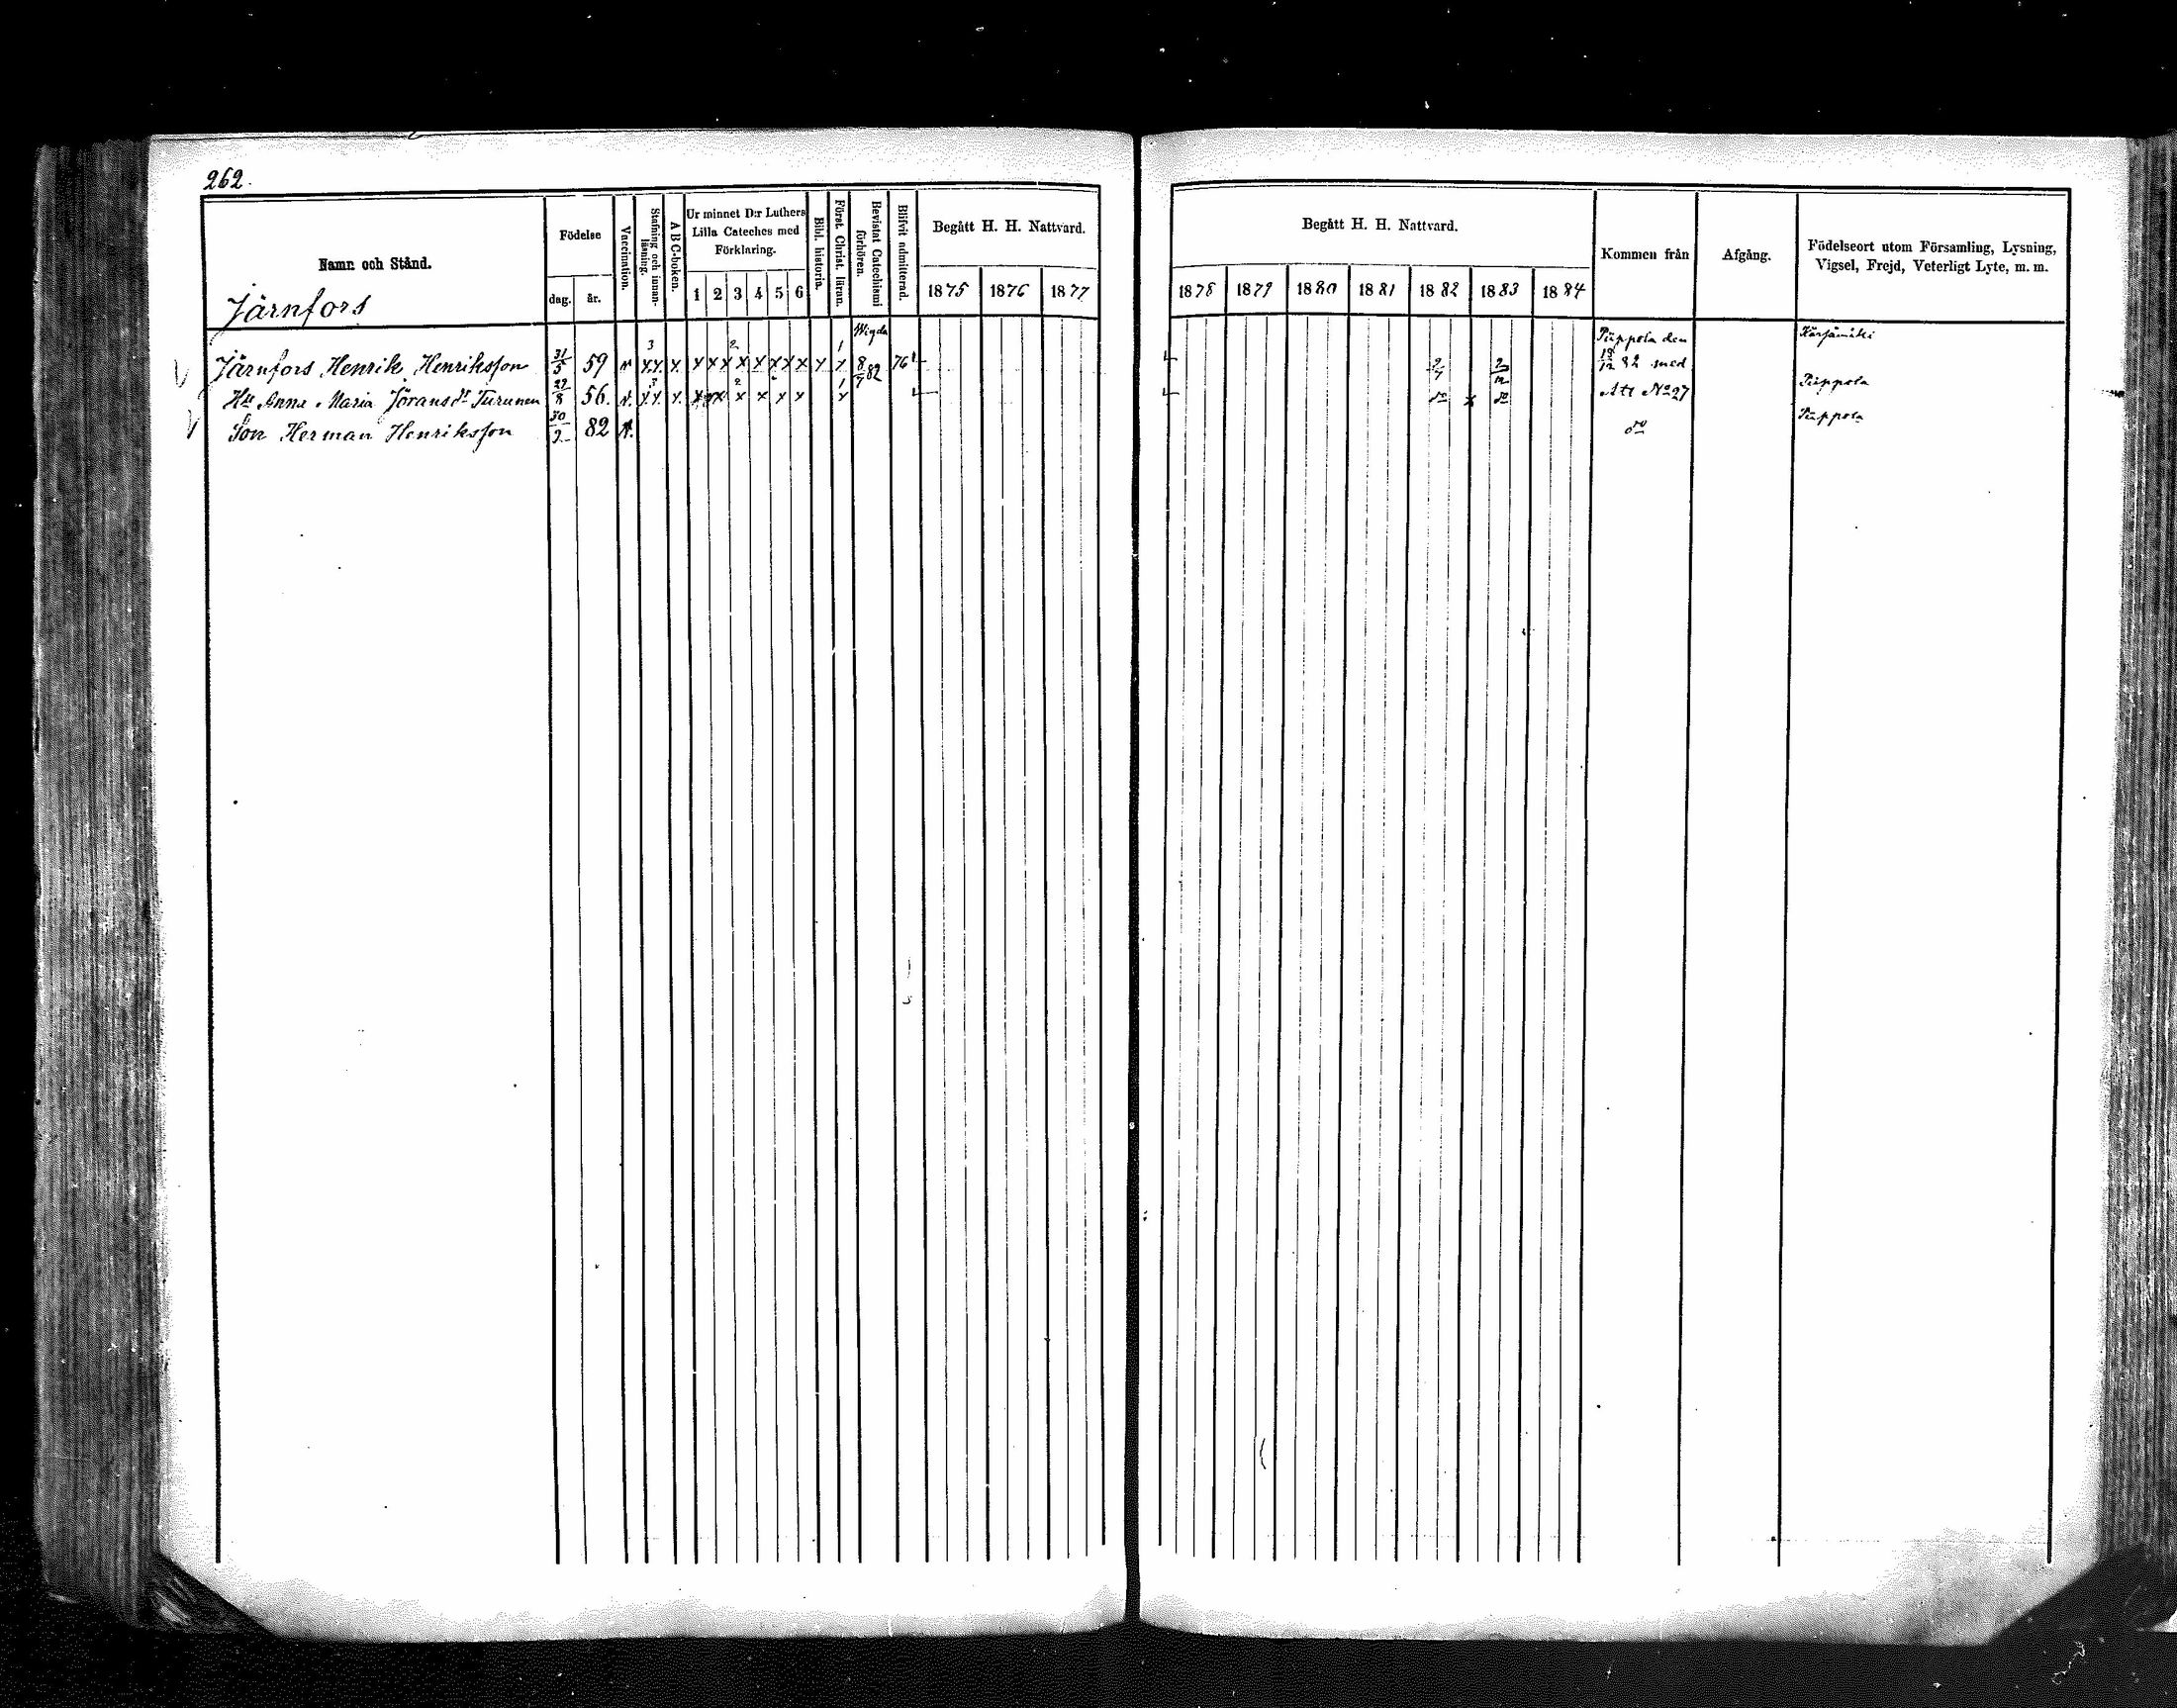 262.
Namn och Stånd.
Järnfors
Födelse
dag. år.
Vaccination.
Stafning och innan-läsning.
A B C-boken.
Ur minnet D:r Luthers Lilla Cateches med Förklaring.
1 2 3 4 5 6
Bibl. historia.
Först. Christ. läran.
Bevistat Catechismi förhören.
Blifvit admitterad.
Begått H. H. Nattvard.
1875 1876 1877
Begått H. H. Nattvard.
1878 1879 1880 1881 1882 1883 1884
Kommen från
Afgång.
Födelseort utom Församling, Lysning, Vigsel, Frejd, Veterligt Lyte, m. m.
3 2 1 Wigda Piippola den Kärsämäki
Järnfors Henrik Henriksson 31/5 59 v x.x. x. x x x x x x x x x x 8/7 82 76 2/7 2/12 18/12 82 med
3 2 1 Piippola
Hu Anna Maria Jöransdr Turunen 29/8 56. v. x.x. x. x x x x x x x do x do Att No 27
Piippola
Son Herman Henriksson 30/9 82 v. do